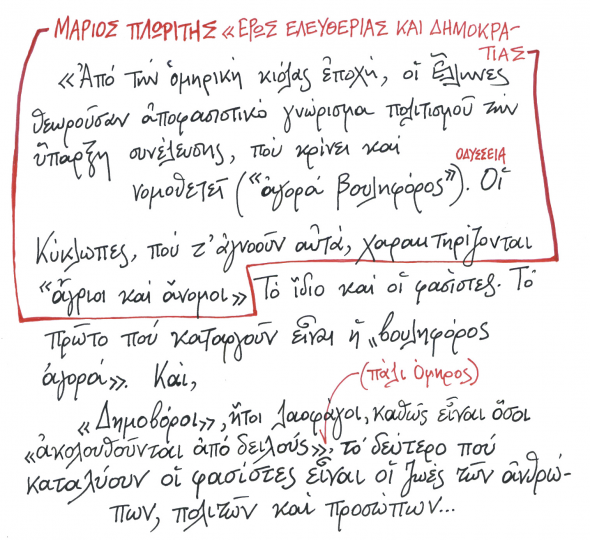 ΜΑΡΙΟΣ ΠΛΩΡΙΤΗΣ «ΕΡΩΣ ΕΛΕΥΘΕΡΙΑΣ ΚΑΙ ΔΗΜΟΚΡΑ-
ΤΙΑΣ»
«Ἀπό τήν ὁμηρική κιόλας ἐποχή, οἱ Ἕλληνες
θεωροῦσαν ἀποφασιστικό γνώρισμα πολιτισμοῦ τήν
ὕπαρξη συνέλευσης, πού κρίνει καί
ΟΔΥΣΣΕΙΑ
νομοθετεῖ ("ἀγορά βουληφόρος"). Οἱ
Κύκλωπες, πού τ' ἀγνοοῦν αὐτά, χαρακτηρίζονται
"ἄγριοι καί ἄνομοι» Τό ἴδιο καί οἱ φασίστες. Τό
πρῶτο πού καταργοῦν εἶναι ἡ «βουληφόρος
ἀγορά». Καί,
(πάλι Ὅμηρος)
«Δημοβόροι», ἤτοι λαοφάγοι, καθώς εἶναι ὅσοι
«ἀκολουθοῦνται ἀπό δειλούς», τό δεύτερο πού
καταλύουν οἱ φασίστες εἶναι οἱ ζωές τῶν ἀνθρώ-
πων, πολιτῶν καί προσώπων...